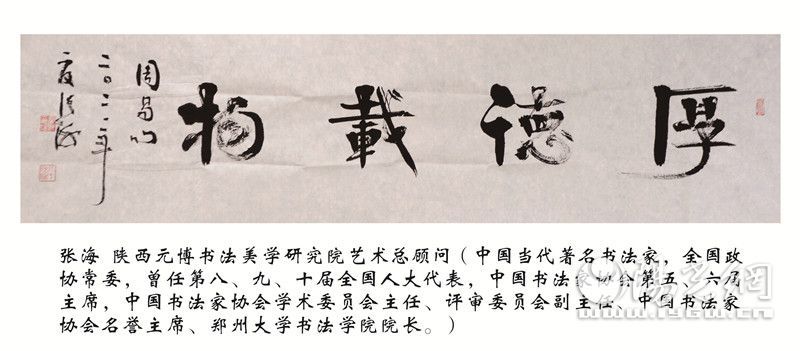 厚德載物
周易
張海
张海 陕西元博书法美学研究院艺术总顾问（中国当代著名书法家，全国政
协常委，曾任第八、九、十届全国人大代表，中国书法家协会第五、六届
主席，中国书法家协会学术委员会主任、评审委员会副主任、中国书法家
协会名誉主席、郑州大学书法学院院长。）